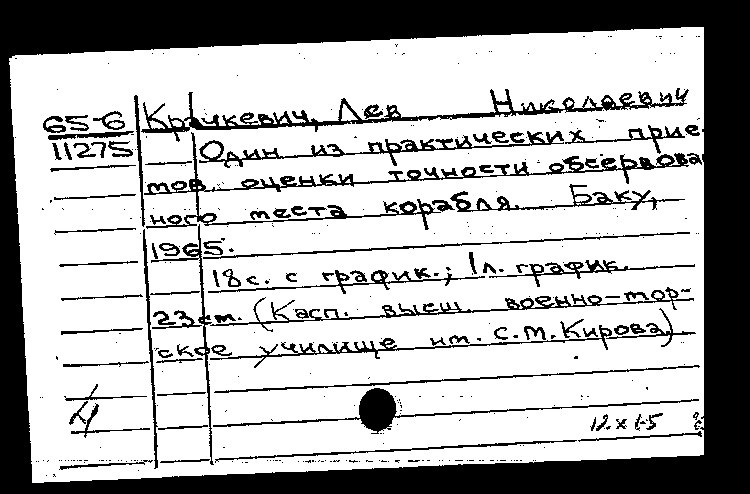 65-6 Крачкевич, Лев Николаевич
11275 Один из практических прие-
мов оценки точности обсервова
ного места корабля. Баку,
1965.
18 с. с график.; 1 л. график.
23 см. (Касп. высш. военно-мор-
ское училище им. С.М. Кирова)
12 x 65